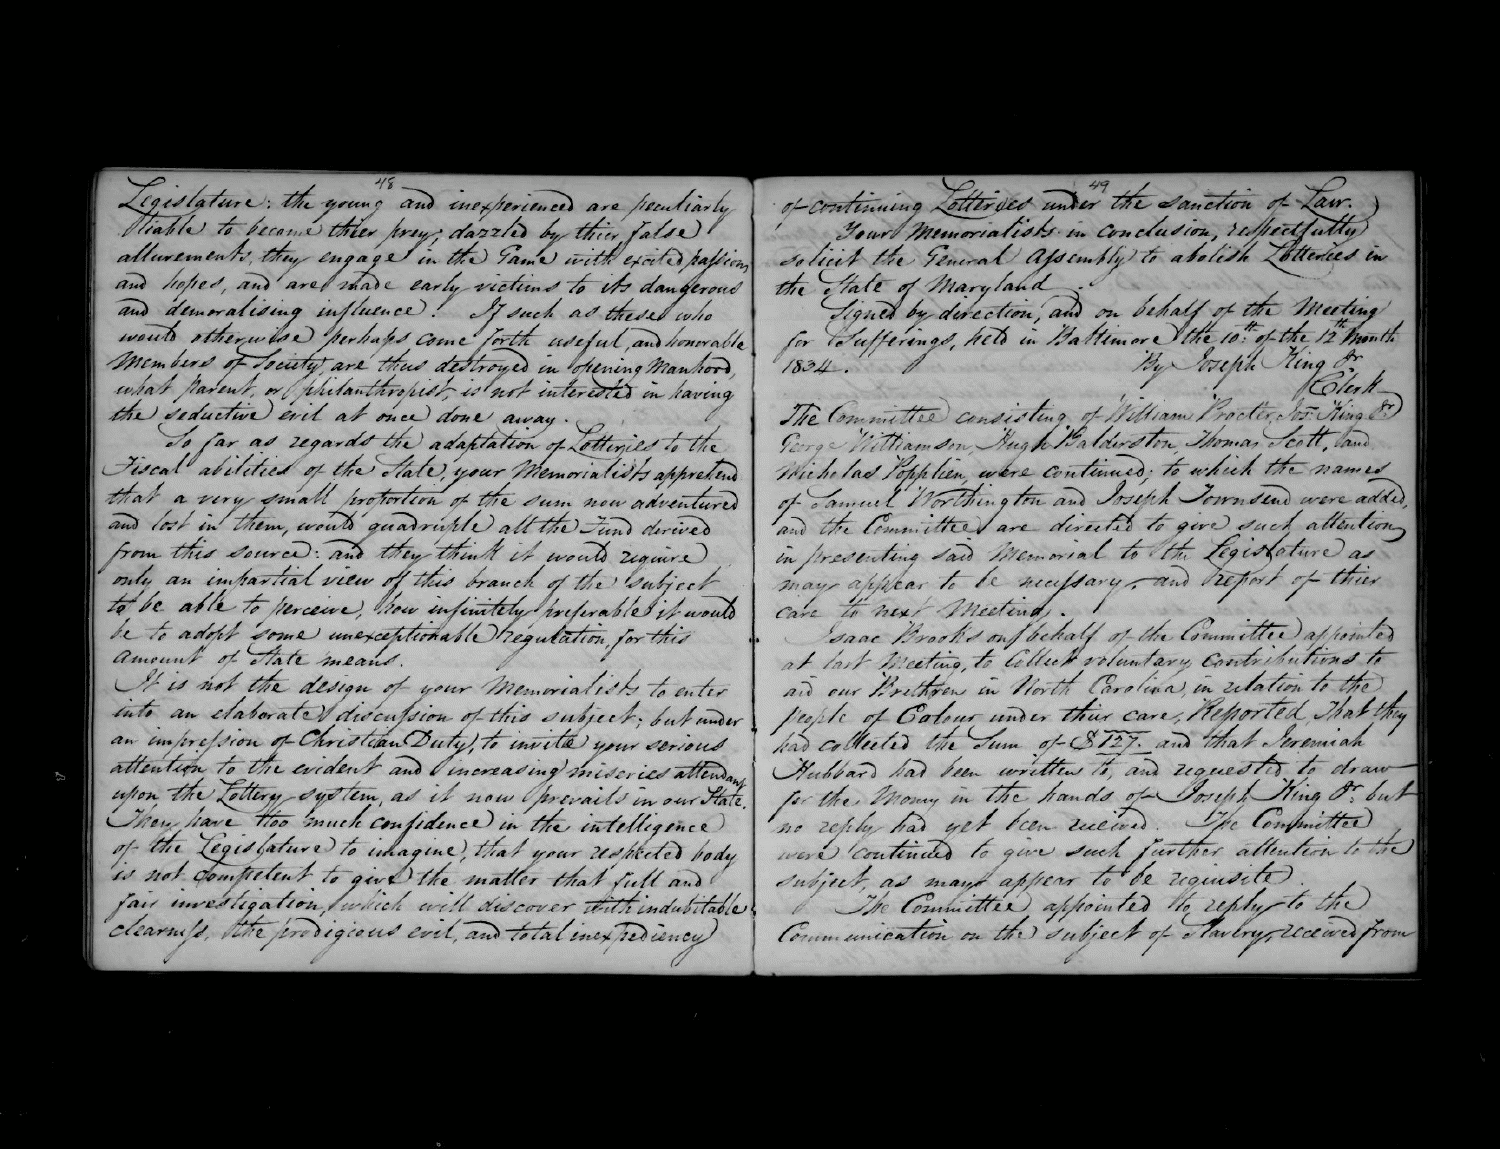 48
Legislature: the young and inexperienced are peculiarly
liable to become thier prey; dazzled by thier false
allurements, they engage in the Game with excited passions
and hopes, and are made early victims to its dangerous
and demoralising influence. If such as these who
would otherwise perhaps come forth useful, and honorable
Members of Society, are thus destroyed in opening Manhood,
what parent, or philanthropist, is not interested in having
the seductive evil at once done away.
So far as regards the adaptation of Lotteries to the
Fiscal abilities of the State, your Memorialists apprehend
that a very small proportion of the sum now adventured
and lost in them, would quadruple all the Fund derived
from this source: and they think it would require
only an impartial view of this branch of the subject
to be able to perceive, how infinitely preferable it would
be to adopt some unexceptionable regulation, for this
amount of State means.
It is not the design of your Memorialists to enter
into an elaborate discussion of this subject; but under
an impression of Christian Duty, to invite your serious
attention to the evident and increasing miseries attendant
upon the Lottery system, as it now prevails in our State.
They have too much confidence in the intelligence
of the Legislature to imagine, that your respected body
is not competent to give the matter that full and
fair investigation, which will discover with indubitable
clearness, the prodigious evil, and total inexpediency
49
of continuing Lotteries under the sanction of Law.
Your Memorialists in conclusion, respectfully
solicit the General Assembly to abolish Lotteries in
the State of Maryland.
Signed by direction, and on behalf of the Meeting
for Sufferings, held in Baltimore the 10th. of the 12th Month
1834.	By Joseph King Jr
Clerk
The Committee consisting of William Procter, Jos: King Jr
George Williamson, Hugh Balderston, Thomas Scott, and
Nicholas Popplien, were continued; to which the names
of Samuel Worthington and Joseph Townsend were added,
and the Committee are directed to give such attention
in presenting said Memorial to the Legislature as
may appear to be necessary, and report of thier
care to next Meeting.
Isaac Brooks on behalf of the Committee appointed
at last Meeting, to Collect voluntary contributions to
aid our Brethren in North Carolina, in relation to the
people of Colour under thier care, Reported, That they
had collected the Sum of $127. and that Jeremiah
Hubbard had been written to, and requested to draw
for the Money in the hands of Joseph King Jr: but
no reply had yet been received. The Committee
were continued to give such further attention to the
subject, as may appear to be requisite.
The Committee appointed to reply to the
Communication on the subject of Slavery, received from